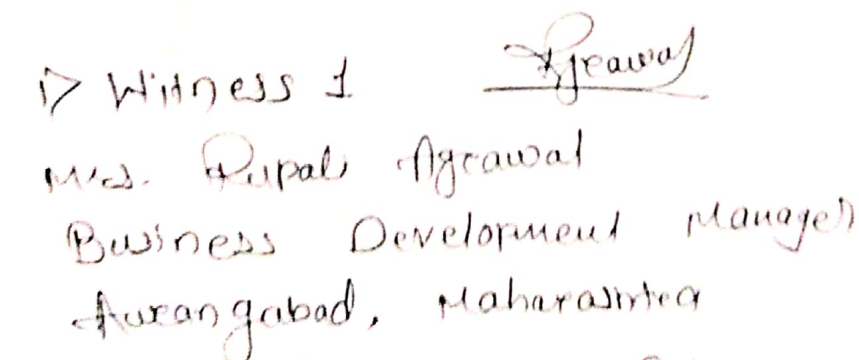 1> Witness 1 RAgrawal
Mrs. Rupali Agrawal
Business Development Manager
Aurangabad, Maharashtra